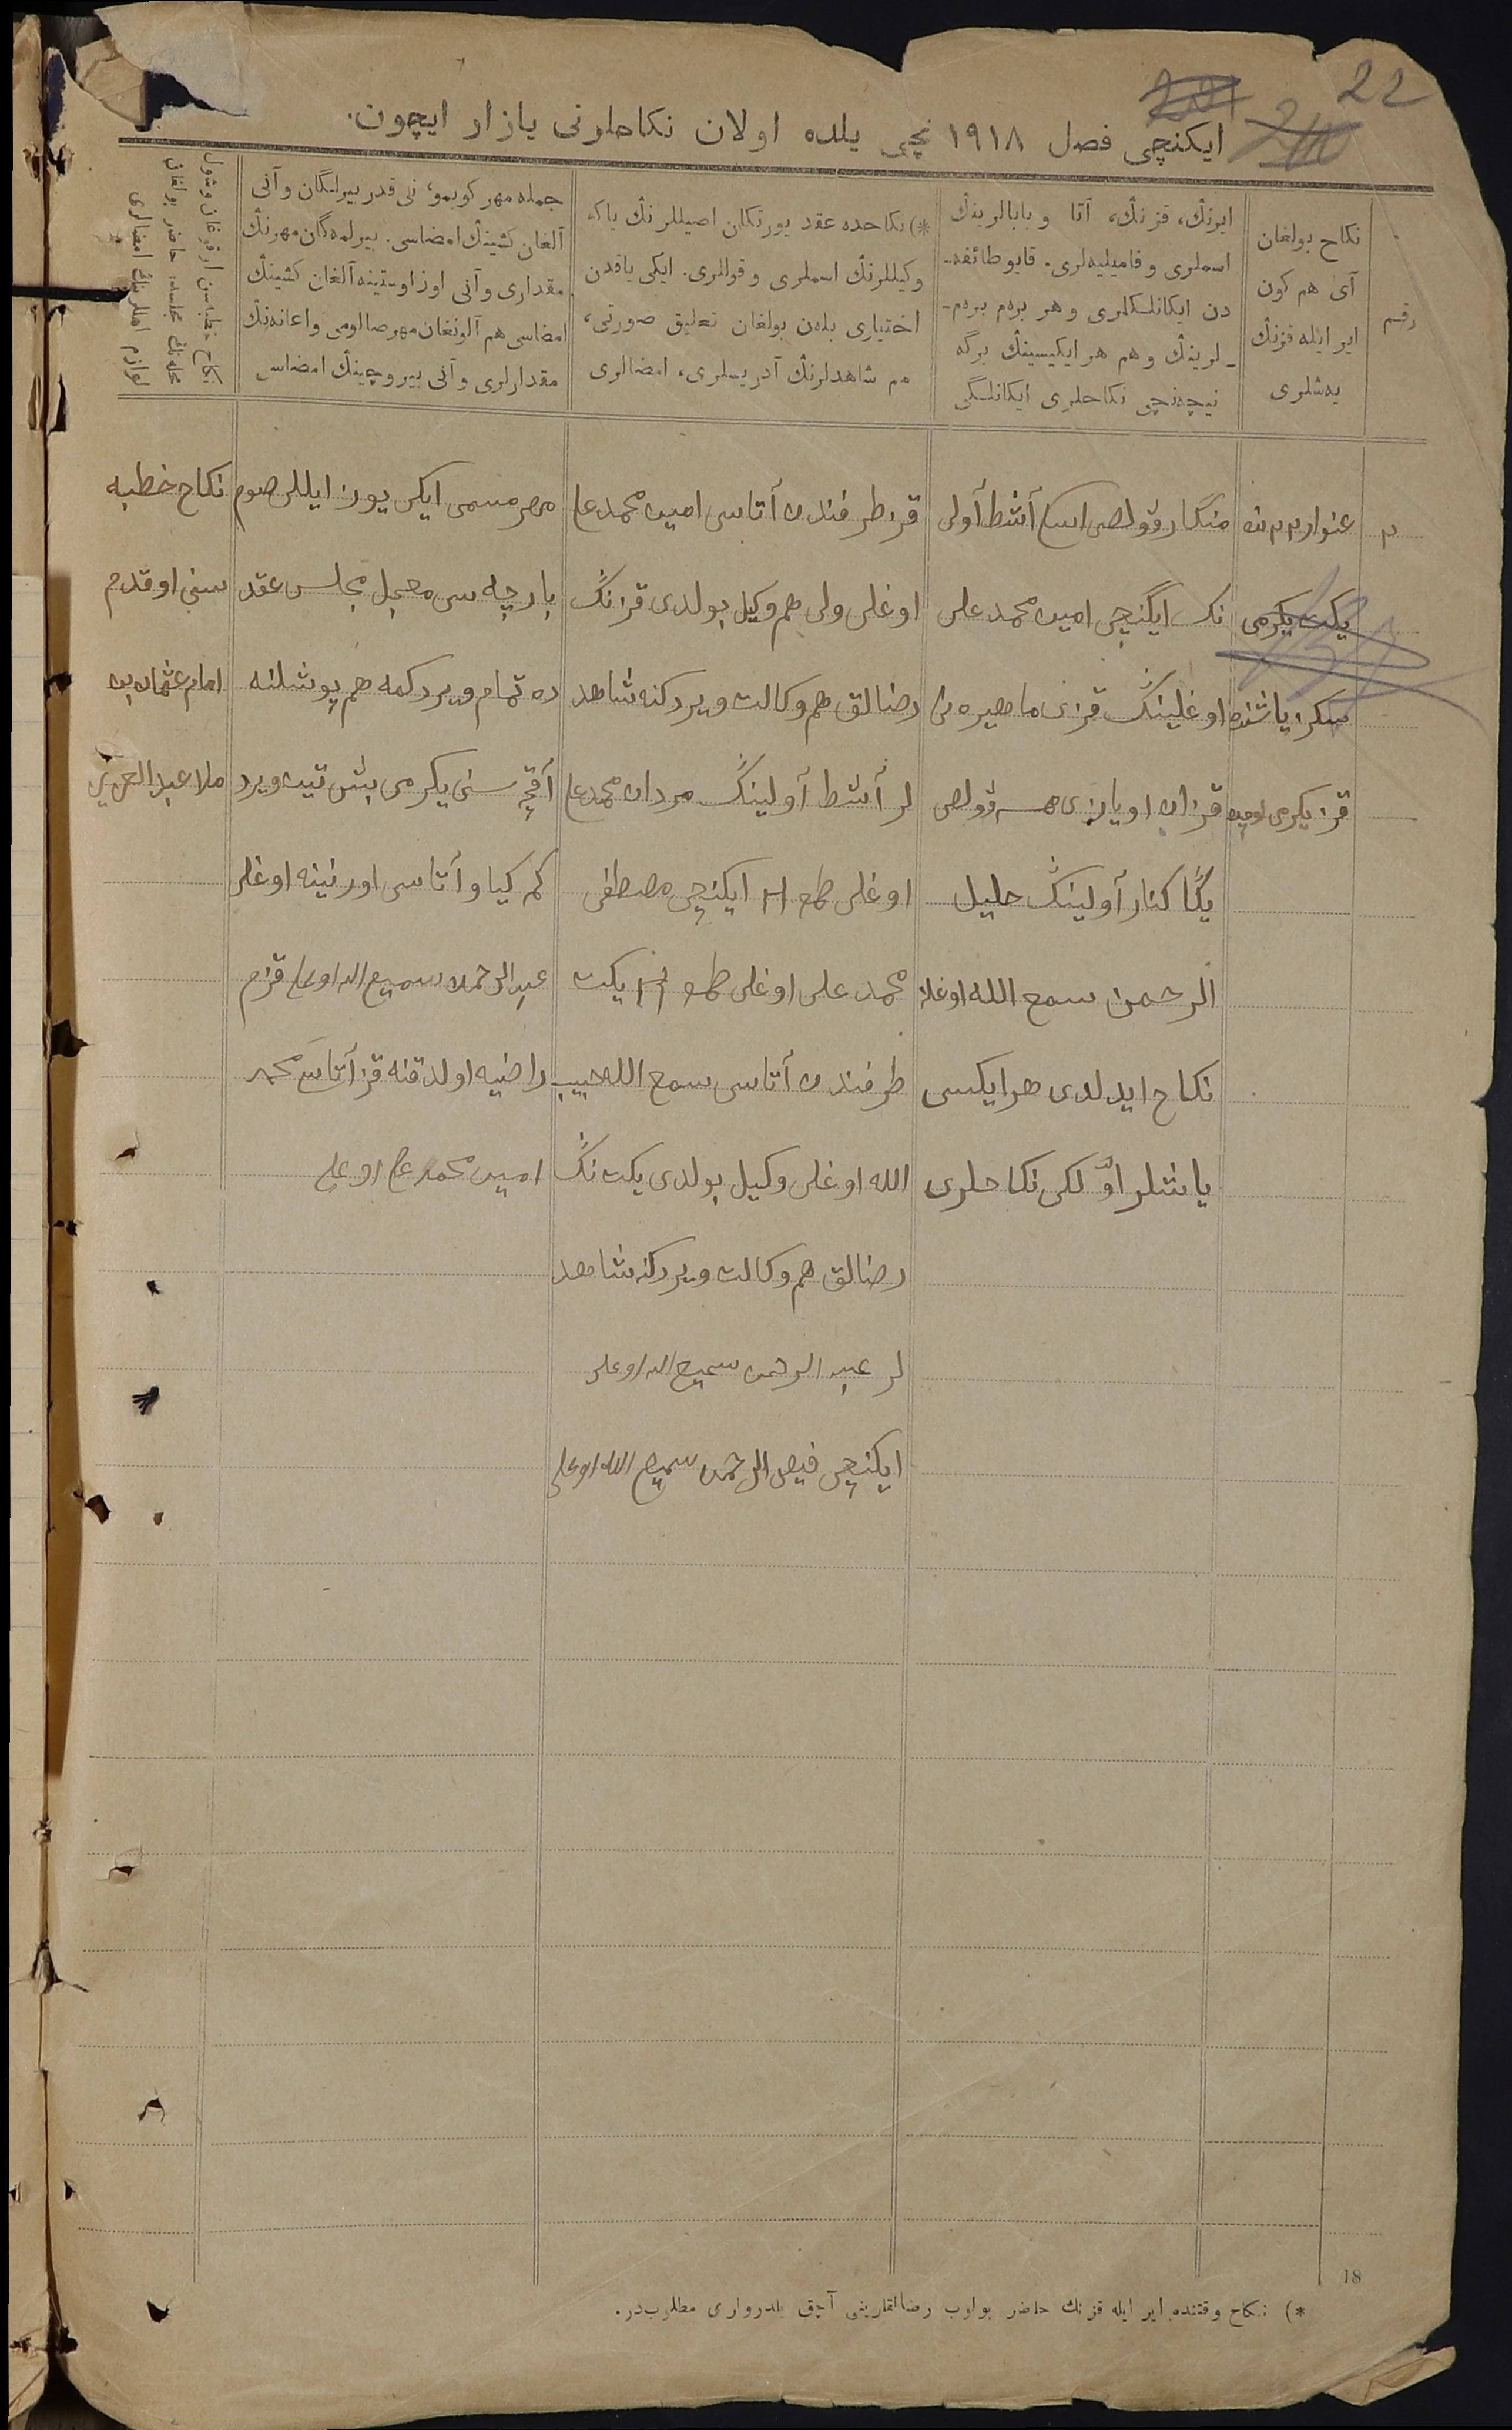 22
ایکنچی فصل ١٩١٨ نچی یلده اولان نکاحلرنی یازار ایچون.
رقم
نکاح بولغان
آی هم کون
ایر ایله قزنڭ
یەشلری
ایرنڭ، قزنڭ، آتا و بابالرینڭ
اسملری و فامیلیەلری. قایو طائفه-
دن ایکانلکلری و هر برەم برەم-
-لرینڭ و هم هر ایکیسینڭ برگه
نیچەنچی نکاحلری ایکانلگی
*) نکاحده عقد یورتکان اصیللرنڭ یاکە
وکیللرنڭ اسملری و قوللری. ایکی یاقدن
اختیاری بلەن بولغان تعلیق صورتی،
هم شاهدلرنڭ آدریسلری، امضالری
جمله مهر کوبمو، نی قدر بیرلگان و آنی
آلغان کشینڭ امضاسی. بیرلمەگان مهرنڭ
مقداری و آنی اوز اوستینه آلغان کشینڭ
امضاسی هم آلونغان مهر صالومی و اعانەنڭ
مقدارلری و آنی بیروچینڭ امضاسی
نکاح خطبەسن اوقوغان وشول
محلەنڭ مجلسده حاضر بولغان
لوازم اهللرینڭ امضالری
٢
عنوار ٢٢ نده
یکت یکرمی
سکز یاشنده
قز یکرمی اوچده
منگار ۋولصی اسکی آشط أولی
نڭ ایگنچی امین محمد علی
اوغلینڭ قزی ماهیره نی
قزان اویازی ۋولصی
یڭا کنار أولینڭ خلیل
الرحمن سمع الله اوغلانه
نکاح ایدلدی هر ایکسی
یاشلر اوّلکی نکاحلری
قز طرفندن آتاسی امین محمد علی
اوغلی ولی هم وکیل بولدی قزنڭ
رضالق هم وکالت ویردکنه شاهد
لر أشط أولینڭ مردان محمد علی
اوغلی طمغ H ایکنچی مصطفی
محمد علی اوغلی طمغ H یکت
طرفندن آتاسی سمع الله حبیب
الله اوغلی وکیل بولدی یکت نڭ
رضالق هم وکالت ویردکنه شاهد
لر عبد الرحمن سمیع الله اوغلی
ایکنچی فیض الرحمن سمیع الله اوغلی
مهر مسمی ایکی یوز ایللی صوم
بارچه سی معجل مجلس عقد
ده تمام ویردکمه هم پوشلنه
آقچه سنی یکرمی بش تیین ویرد
کم کیاو آتاسی اورنینه اوغلی
عبد الرحمن سمیع الله اوغلی قزم
راضیه اولدقنه قز آتاسی محمد
امین محمد علی اوغلی
نکاح خطبه
سنی اوقدم
امام عثمان بن
ملا عبد العزیز
18
*) نکاح وقتنده ایر ایله قزنڭ حاضر بولوب رضالقلرینی آچق بلدرولری مطلوبدر.